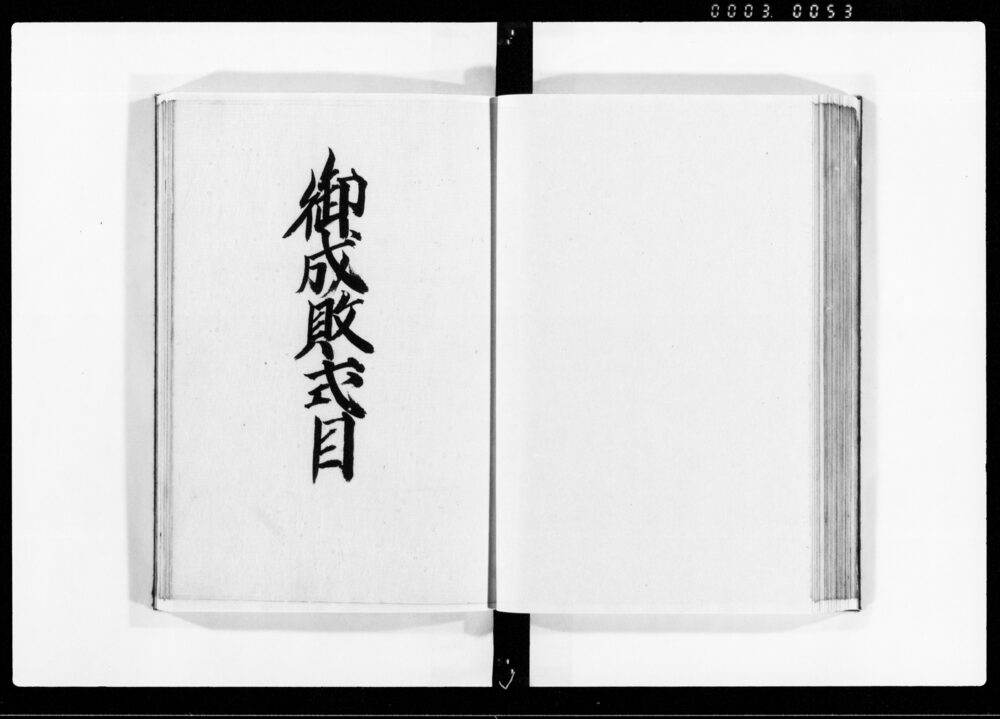 0003. 0053
御成敗式目